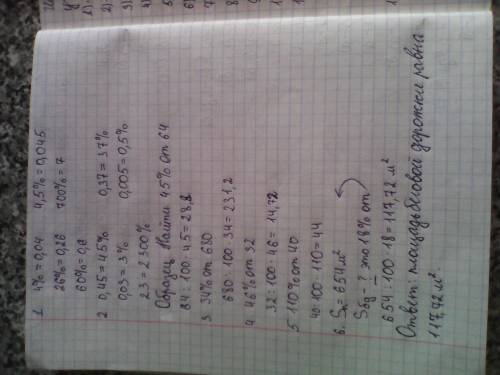 1 4%=0,04 4,5%=0,045
26%=0,26 700%=7
60%=0,6
2 0,45=45% 0,37=37%
0,03=3% 0,005=0,5%
23=2300%
Образец Найти 45% от 64
64:100·45=28,8
3 34% от 680
680:100·34=231,2
4 46% от 32
32:100·46=14,72
5 110% от 40
40:100·110=44
6. Sп=654м²
Sбд-? это 18% от
654:100·18=117,72 м²
Ответ: площадь беговой дорожки равна
117,72 м².